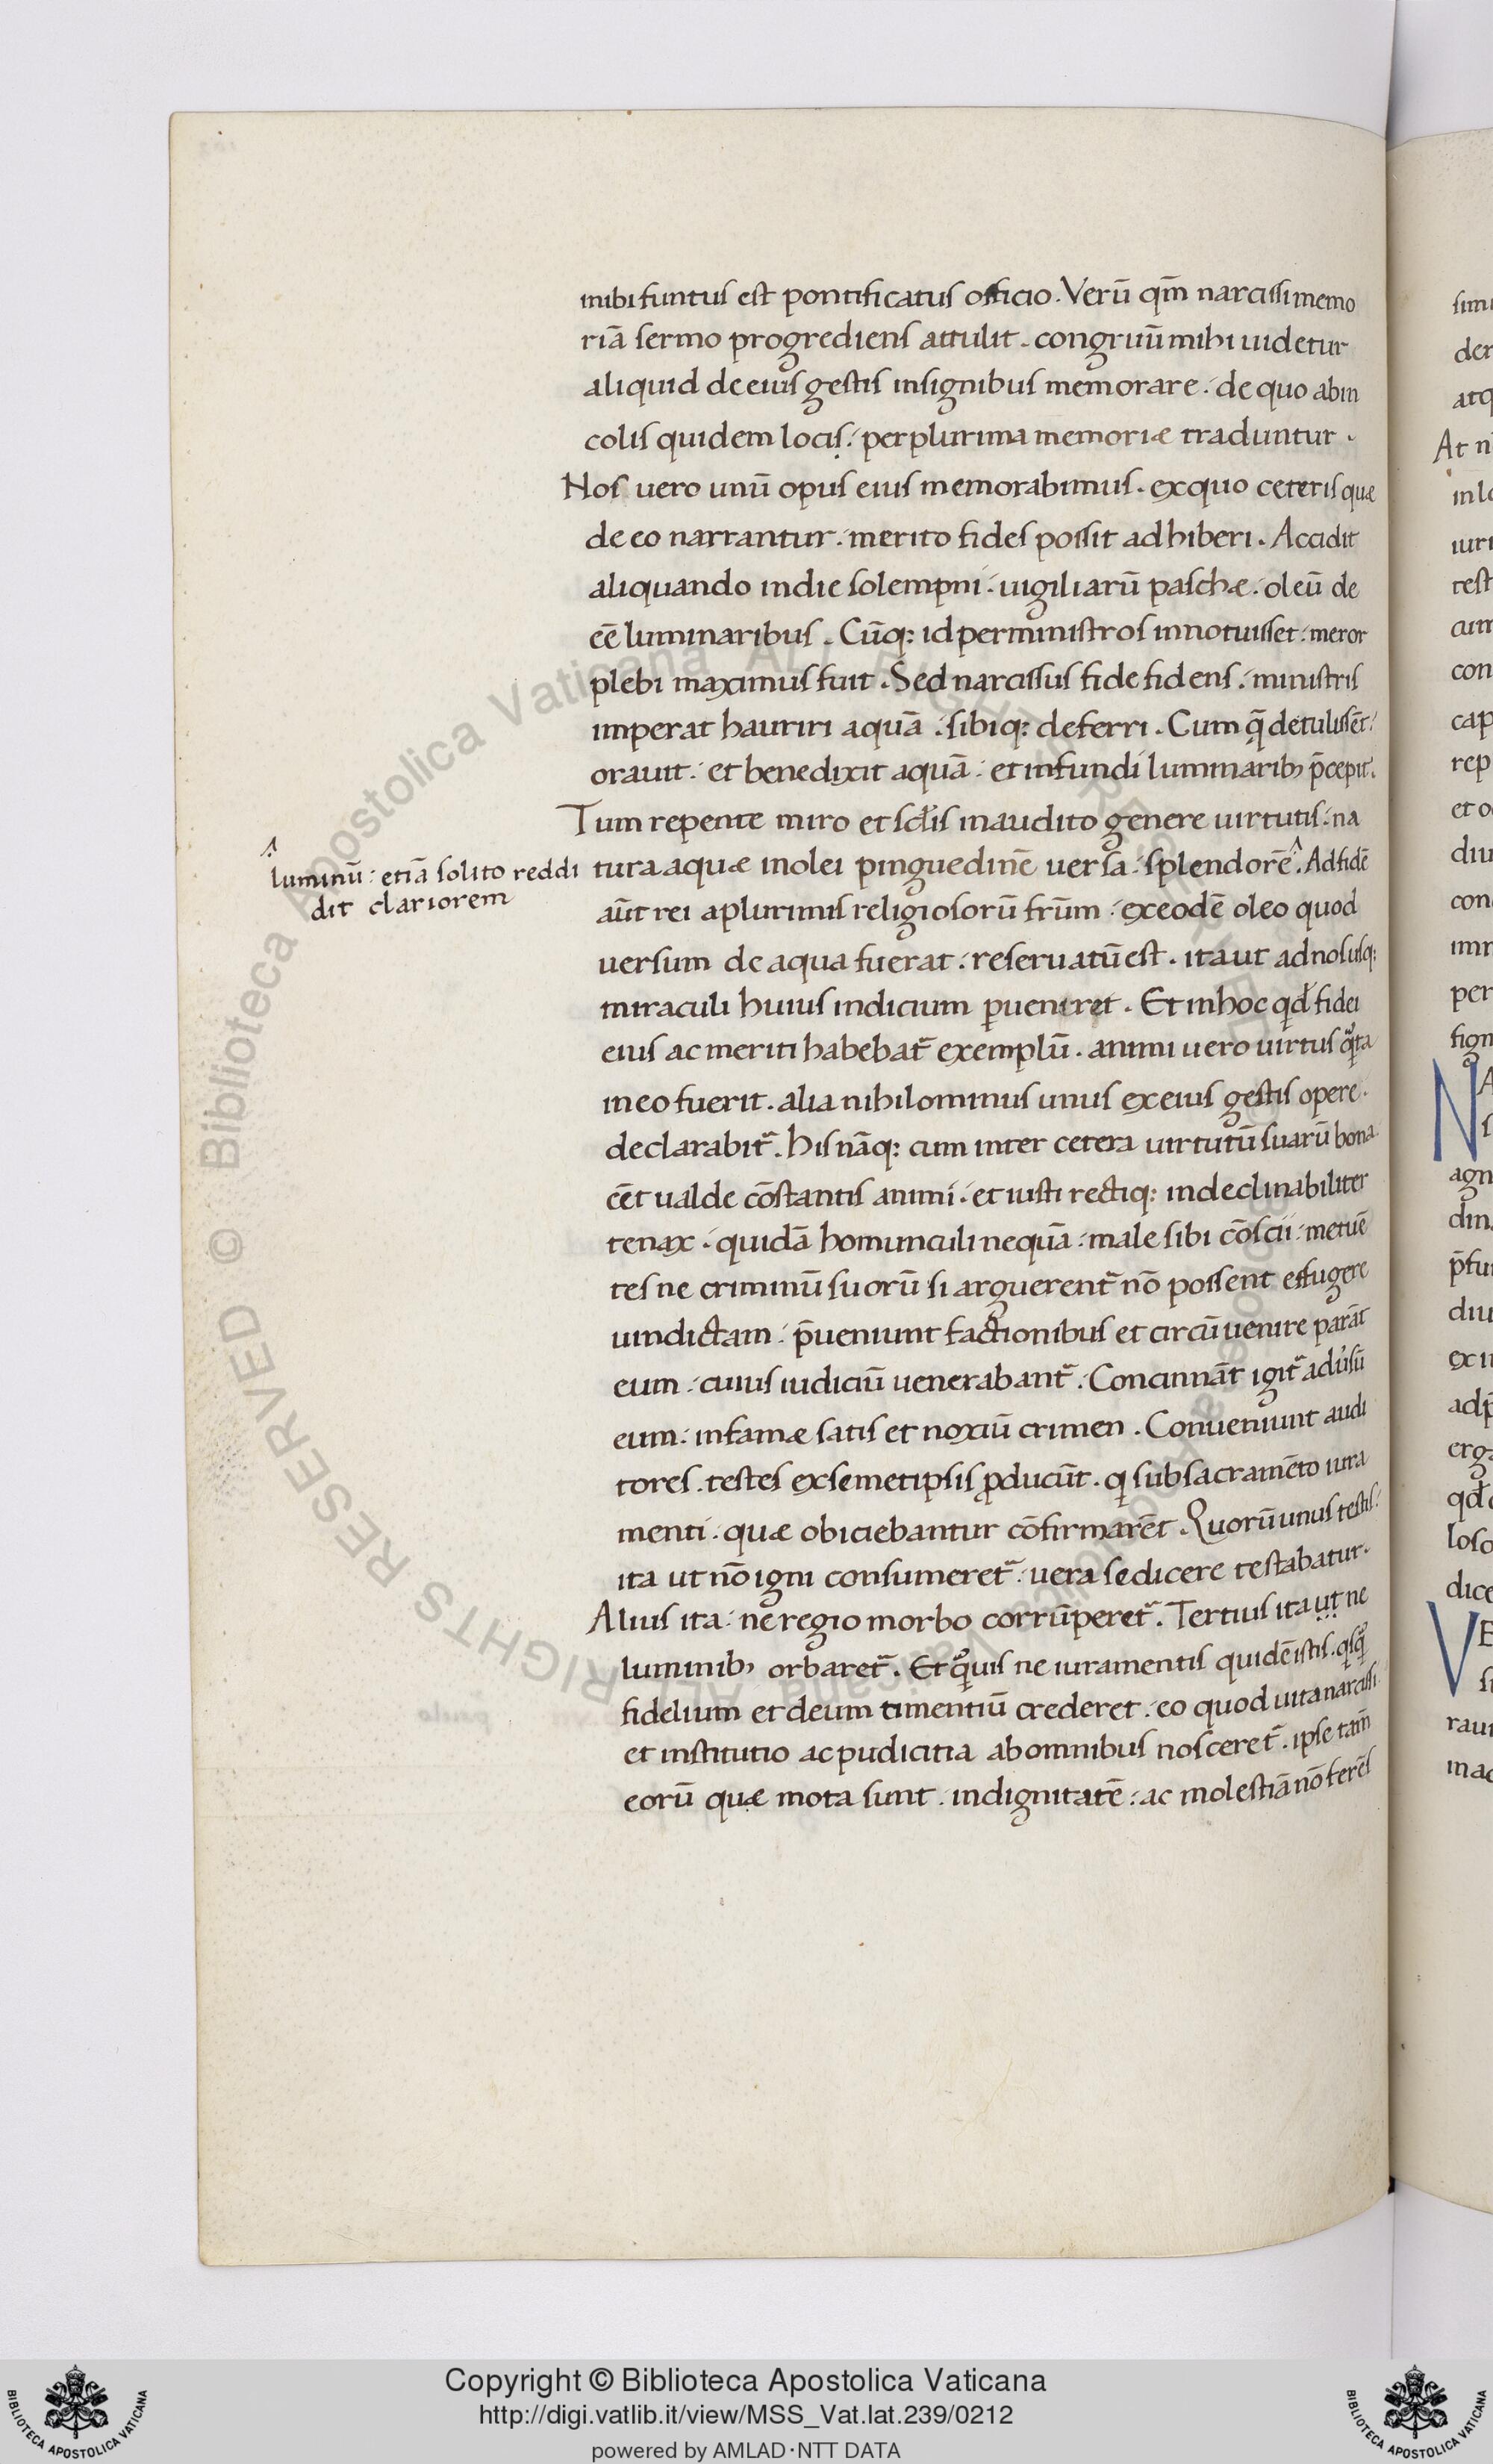 inibi funtus est pontificatus officio. Verū qm̄ narcissi memo
riā sermo progrediens attulit. congruū mihi uidetur
aliquid de eius gestis insignibus memorare. de quo ab in
colis quidem locis. perplurima memoriæ traduntur.
Nos uero unū opus eius memorabimus. ex quo ceteris quæ
de eo narrantur. merito fides possit adhiberi. Accidit
aliquando in die solempni. uigiliarū paschæ. oleū de
eē luminaribus. Cūq; id per ministros innotuisset. meror
plebi maximus fuit. Sed narcissus fide fidens. ministris
imperat hauriri aquā. sibiq; deferri. Cum q̄ detulissēt.
orauit. et benedixit aquā. et infundi luminarib; p̄cepit.
Tum repente miro et sclis inaudito genere uirtutis. na
tura aquæ in olei pinguedinē uersa. splendorē. Ad fidē
luminū: etiā solito reddi
dit clariorem
aūt rei a plurimis religiosorū frūm. ex eodē oleo quod
uersum de aqua fuerat. reseruatū est. ita ut ad nos usq;
miraculi huius indicium ꝑueniret. Et in hoc qd̓ fidei
eius ac meriti habebat᷑ exemplū. animi uero uirtus qͣ̓ta
in eo fuerit. alia nihilominus unus ex eius gestis opere.
declarabit᷑. His nāq; cum inter cetera uirtutū suarū bona
eēt ualde cōstantis animi. et iusti rectiq; indeclinabiliter
tenax. quidā homunculi nequā. male sibi cōscii. metuē
tes ne criminū suorū si arguerent᷑ nō possent effugere
uindictam. p̄ueniunt factionibus et circūuenire parāt
eum. cuius iudiciū uenerabant᷑. Concinnāt igit᷑ adu̓sū
eum. infamæ satis et noxiū crimen. Conueniunt audi
tores. testes ex semetipsis ꝓducūt. q̇ sub sacramēto iura
menti. quæ obiciebantur cōfirmarēt. Quorū unus testis.
ita ut nō igni consumeret᷑. uera se dicere testabatur.
Alius ita. ne regio morbo corrūperet᷑. Tertius ita ut ne
luminib; orbaret᷑. Et qͣ̓uis ne iuramentis quidē istis. qsqͣ̓
fidelium et deum timentiū crederet. eo quod uita narcissi
et institutio ac pudicitia ab omnibus nosceret᷑. ipse tam̄
eorū quæ mota sunt. indignitatē. ac molestiā nō ferēs
Copyright © Biblioteca Apostolica Vaticana
http://digi.vatlib.it/view/MSS_Vat.lat.239/0212
powered by AMLAD·NTT DATA